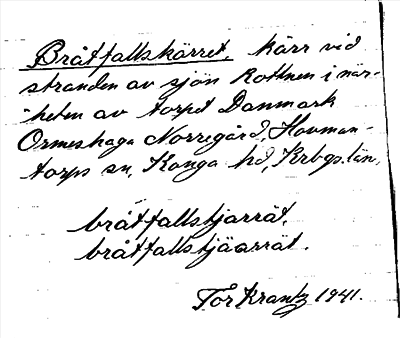 Bråtfallskärret. Kärr vid
stranden av sjön Rottnen i när-
heten av torpet Danmark
Ormeshaga Norregård, Hovman-
torps sn, Konga hd, Krbgs. län.
bråtfallstjarrät.
bråtfallstjäarrät.
Tor Krantz 1941.